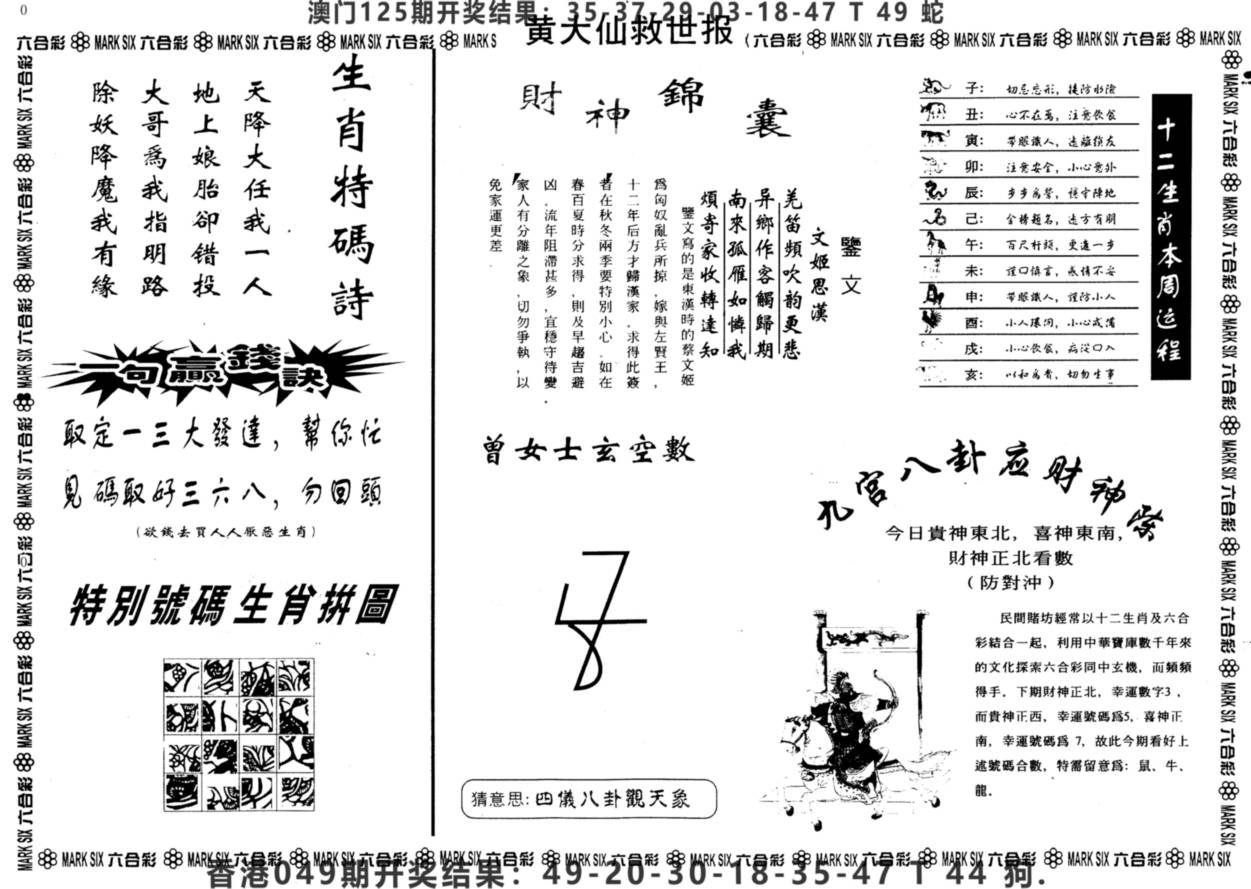 0
澳门125期开奖结果：35-37-29-03-18-47 T 49 蛇
黄大仙救世报
六合彩 MARK SIX 六合彩 MARK SIX 六合彩 MARK SIX 六合彩 MARK S
(六合彩 MARK SIX 六合彩 MARK SIX 六合彩 MARK SIX 六合彩 MARK SIX
生肖特碼詩
天降大任我一人
地上娘胎卻錯投
大哥爲我指明路
除妖降魔我有緣
一句贏錢訣
取定一三大發達，幫你忙
見碼取好三六八，勿回頭
(欲錢去買人人厭惡生肖)
特別號碼生肖拚圖
財神錦囊
鑒文
文姬思漢
羌笛頻吹韵更悲
异鄉作客觸歸期
南來孤雁如憐我
煩寄家收轉達知
鑒文寫的是東漢時的蔡文姬
爲匈奴亂兵所掠，嫁與左賢王，
十二年后方才歸漢家。求得此簽
者在秋冬兩季要特別小心。如在
春百夏時分求得，則及早趨吉避
凶。流年阻滯甚多，宜穩守待變。
家人有分離之象，切勿爭執，以
免家運更差。
曾女士玄空數
猜意思: 四儀八卦觀天象
十二生肖本周运程
子: 切忌忘形，提防水險
丑: 心不在焉，注意飲食
寅: 帶眼識人，遠離損友
卯: 注意安全，小心意外
辰: 步步爲營，慎守陣地
己: 金榜題名，遠方有朋
午: 百尺杆頭，更進一步
未: 謹口慎言，感情不妥
申: 帶眼識人，謹防小人
酉: 小人環伺，小心或蒲
戌: 小心飲食，病從口入
亥: 以和爲貴，切勿生事
九宮八卦应财神紫
今日貴神東北，喜神東南，
財神正北看數
(防對沖)
民間賭坊經常以十二生肖及六合
彩結合一起，利用中華寶庫數千年來
的文化探索六合彩同中玄機，而頻頻
得手。下期財神正北，幸運數字3，
而貴神正西，幸運號碼爲5，喜神正
南，幸運號碼爲 7，故此今期看好上
述號碼合數，特需留意爲：鼠、牛、
龍。
MARK SIX 六合彩 MARK SIX 六合彩 MARK SIX 六合彩 MARK SIX 六合彩 MARK SIX 六合彩 MARK SIX 六合彩 MARK SIX 六合彩 MARK SIX 六合彩 MARK SIX 六合彩 MARK SIX
香港049期开奖结果：49-20-30-18-35-47 T 44 狗.